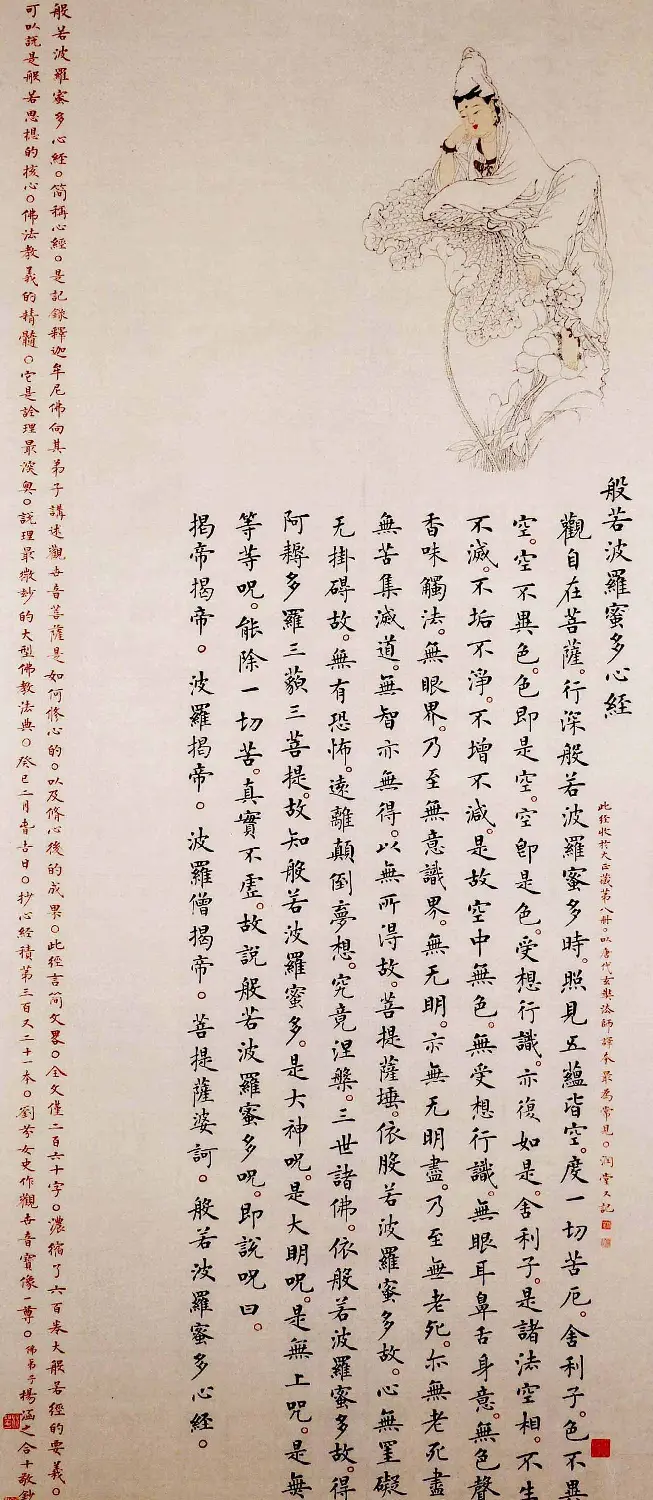 般若波羅蜜多心經
此經收於大正藏第八冊。以唐代玄奘法師譯本最為常見。潤堂又記
觀自在菩薩。行深般若波羅蜜多時。照見五蘊皆空。度一切苦厄。舍利子。色不異
空。空不異色。色即是空。空即是色。受想行識。亦復如是。舍利子。是諸法空相。不生
不滅。不垢不淨。不增不減。是故空中無色。無受想行識。無眼耳鼻舌身意。無色聲
香味觸法。無眼界。乃至無意識界。無无明。亦無无明盡。乃至無老死。亦無老死盡
無苦集滅道。無智亦無得。以無所得故。菩提薩埵。依般若波羅蜜多故。心無罣礙
无掛碍故。無有恐怖。遠離顛倒夢想。究竟涅槃。三世諸佛。依般若波羅蜜多故。得
阿耨多羅三藐三菩提。故知般若波羅蜜多。是大神呪。是大明呪。是無上呪。是無
等等呪。能除一切苦。真實不虛。故說般若波羅蜜多呪。即說呪曰。
揭帝揭帝。波羅揭帝。波羅僧揭帝。菩提薩婆訶。般若波羅蜜多心經。
般若波羅蜜多心經。简稱心經。是記錄釋迦牟尼佛向其弟子講述觀世音菩薩是如何修心的。以及修心後的成果。此經言简文畧。全文僅二百六十字。濃縮了六百卷大般若經的要義。
可以説是般若思想的核心。佛法教義的精髓。它是詮理最深奧。説理最微妙的大型佛教法典。癸巳二月書吉日。抄心經積第三百又二十一本。劉芬女史作觀世音寶像一尊。佛弟子楊涵之合十敬鈔